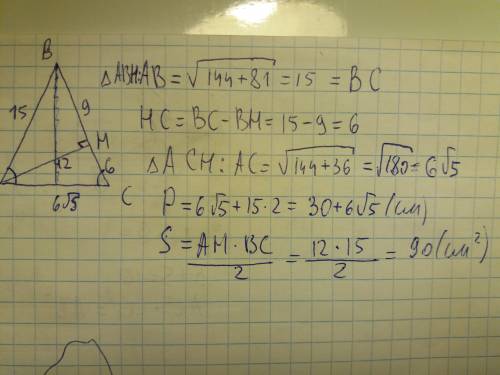 B
15
9
H
12
6
6√5
C
△ABH: AB = √144+81 = 15 = BC
HC = BC - BH = 15 - 9 = 6
△ACH: AC = √144+36 = √180 = 6√5
P = 6√5 + 15·2 = 30 + 6√5 (см)
S = AH·BC/2 = 12·15/2 = 90 (см²)